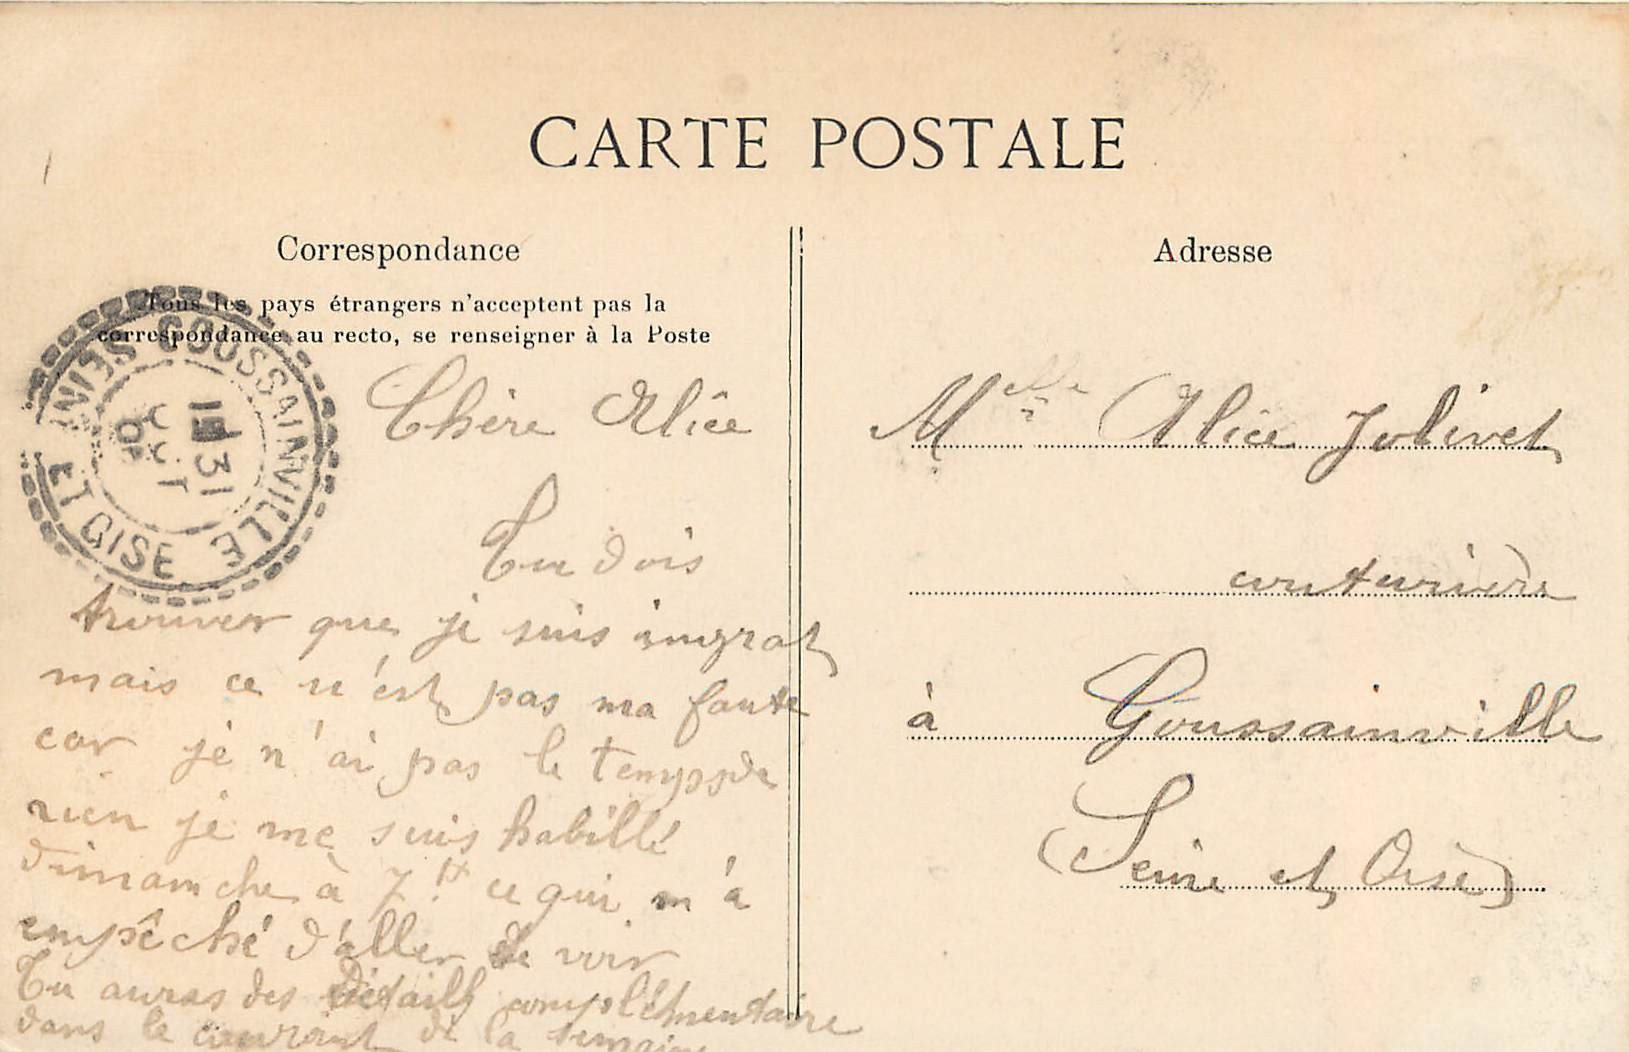 CARTE POSTALE
Correspondance
Tous les pays étrangers n'acceptent pas la
correspondance au recto, se renseigner à la Poste
GOUSSAINVILLE
SEINE ET OISE
31
Chère Alice
Tu dois
trouver que je suis ingrat
mais ce n'est pas ma faute
car je n'ai pas le temps de
rien je me suis habillé
dimanche à 7 H ce qui m'a
empêché d'aller te voir
Tu auras des détails complémentaire
dans le courant de la semaine
Adresse
Melle Alice Jolivet
couturière
à Goussainville
(Seine et Oise)